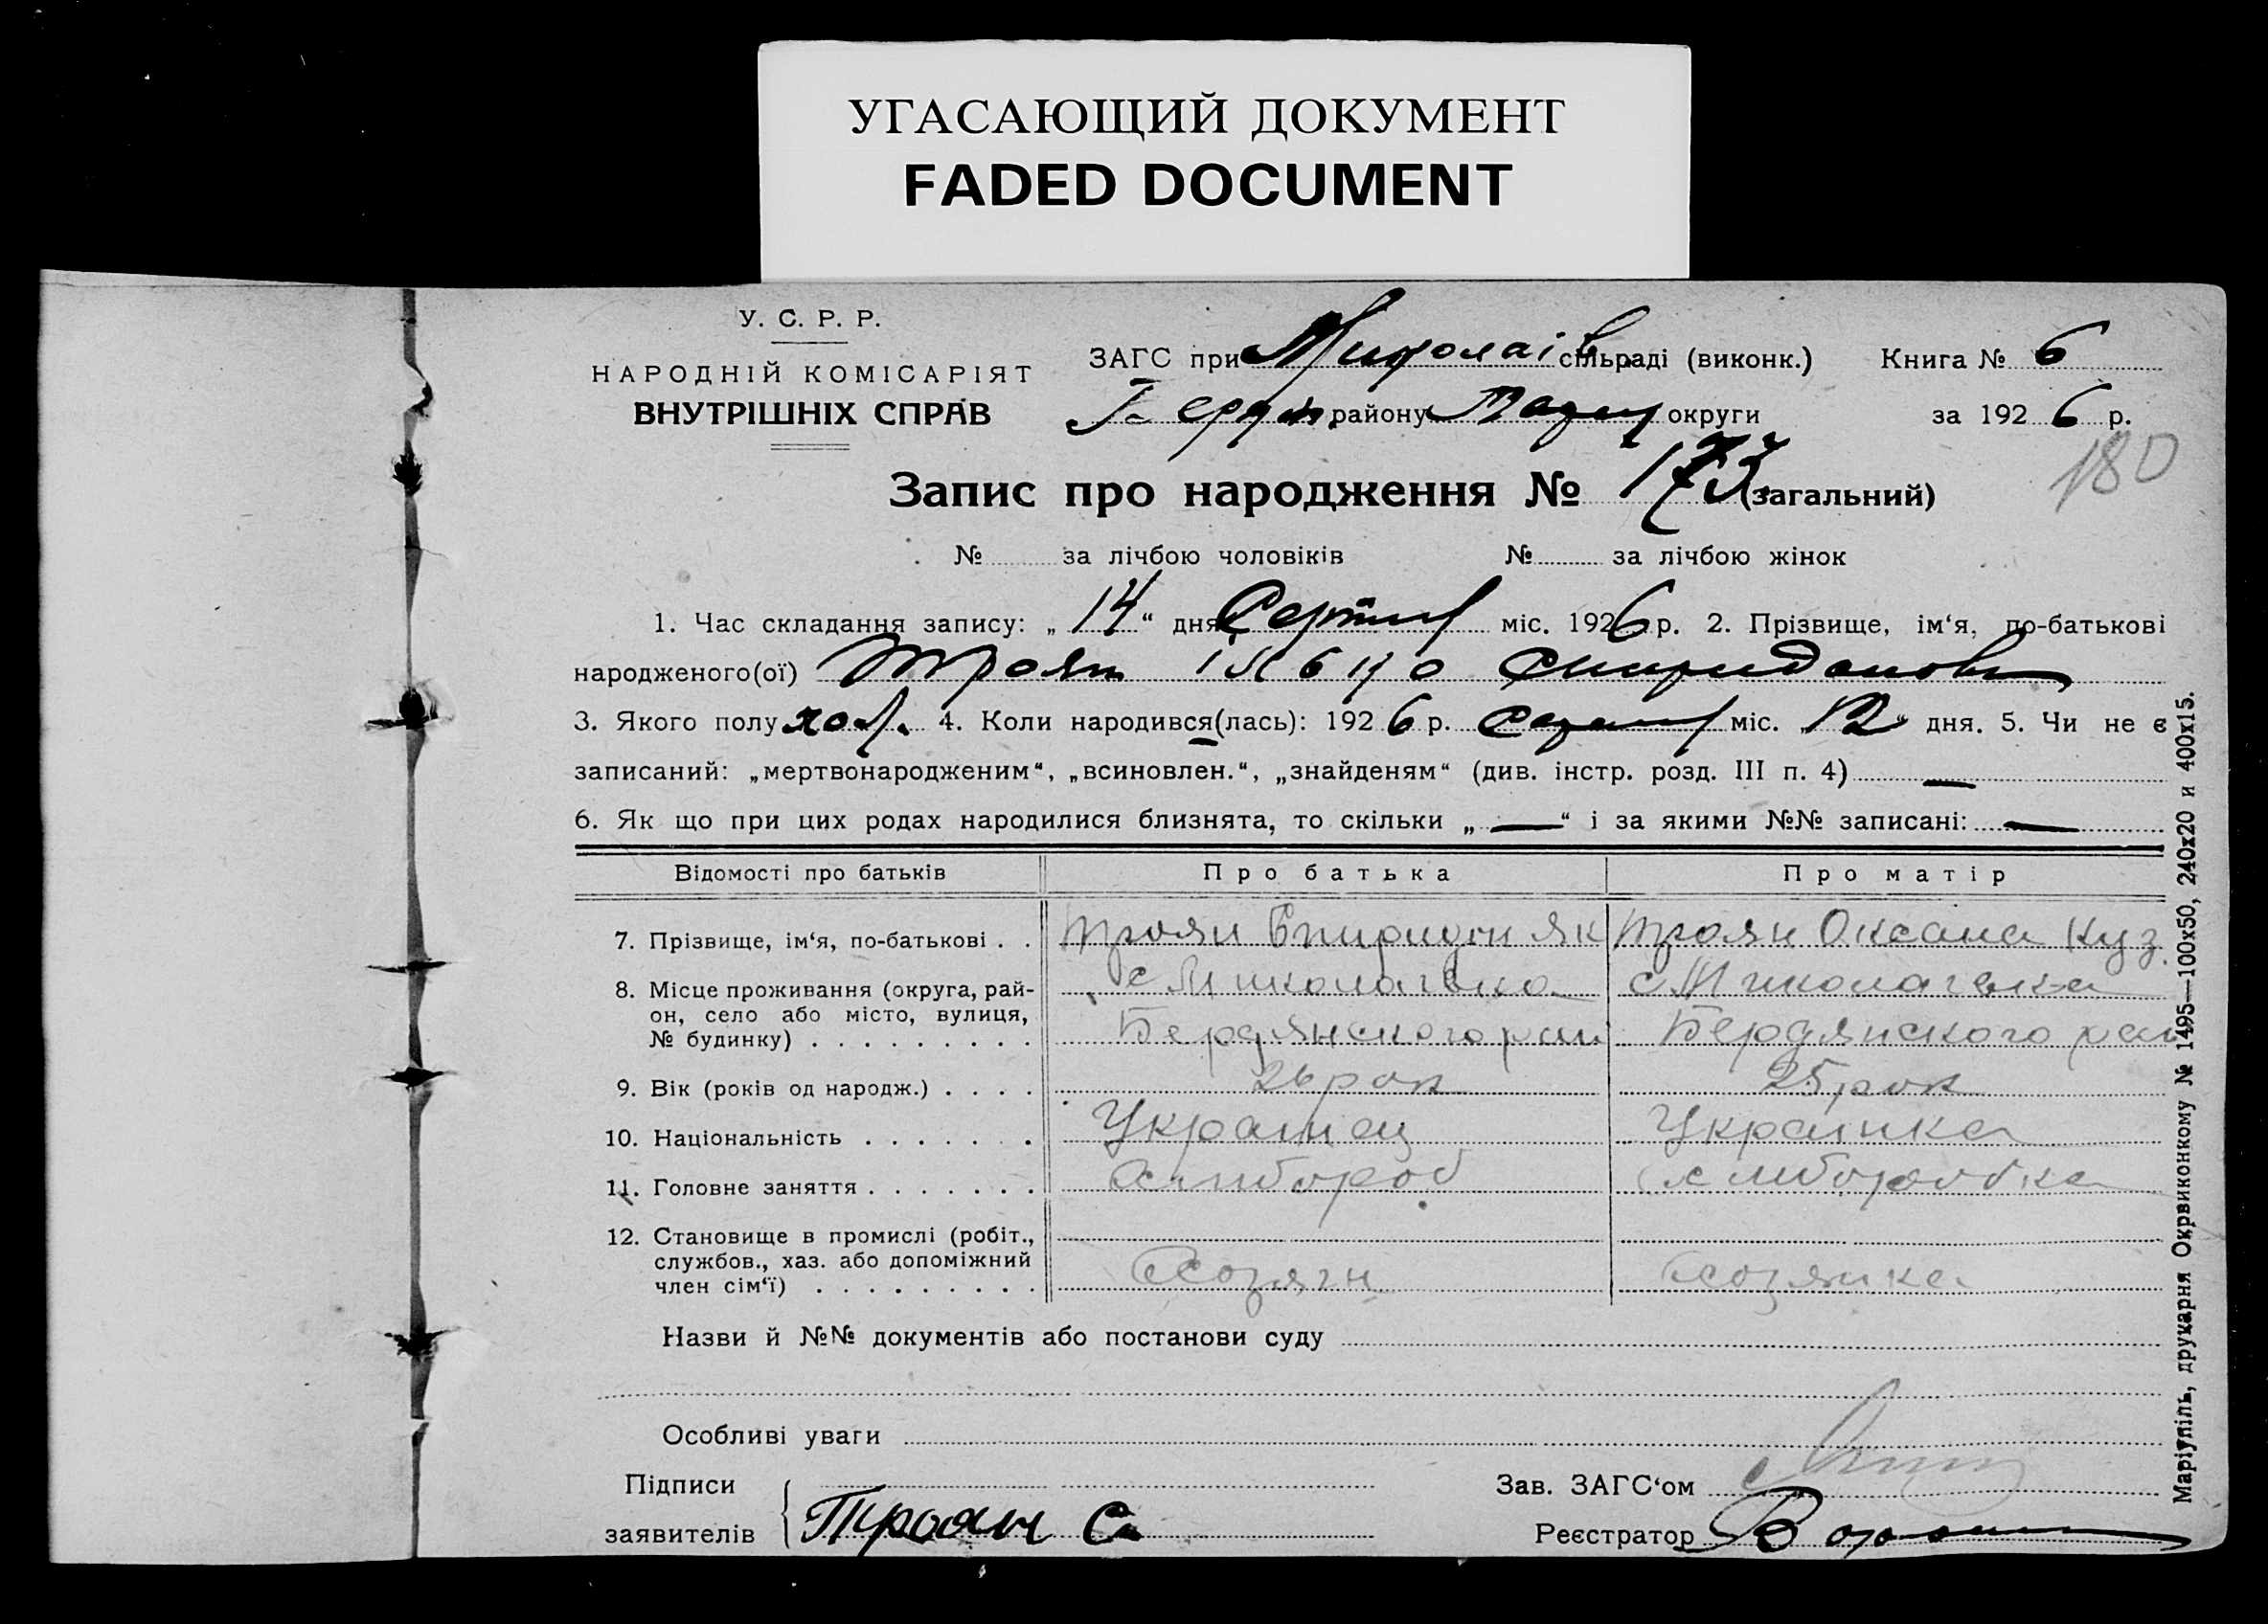 УГАСАЮЩИЙ ДОКУМЕНТ
FADED DOCUMENT
У. С. Р. Р.
НАРОДНІЙ КОМІСАРІЯТ
ВНУТРІШНІХ СПРАВ
ЗАГС при Миколаів сільраді (виконк.) Книга № 6
району округи за 1926 р.
180
Запис про народження № 173 (загальний)
№ за лічбою чоловіків № за лічбою жінок
1. Час складання запису: „14“ дня міс. 1926 р. 2. Прізвище, ім‘я, по-батькові
народженого(ої) Троян
3. Якого полу 4. Коли народився(лась): 1926 р. міс. „12“ дня. 5. Чи не є
записаний: „мертвонародженим“, „всиновлен.“, „знайденям“ (див. інстр. розд. III п. 4) —
6. Як що при цих родах народилися близнята, то скільки „—“ і за якими №№ записані: —
Відомості про батьків Про батька Про матір
7. Прізвище, ім‘я, по-батькові . . Троян Спиридон Як Троян Оксана Куз.
8. Місце проживання (округа, рай- с Миколаевка с Миколаевка
он, село або місто, вулиця,
№ будинку) . . . . . . . . . Бердянского рай Бердянского рай
9. Вік (років од народж.) . . . . 26 рок 25 рок
10. Національність . . . . . . . Украинец Украинка
11. Головне заняття . . . . . . . Хлибороб хлиборобка
12. Становище в промислі (робіт.,
службов., хаз. або допоміжний
член сім‘ї) . . . . . . . . . Хозяин хозяика
Назви й №№ документів або постанови суду
Особливі уваги
Підписи
заявителів Троян С
Зав. ЗАГС‘ом
Реєстратор
Маріупіль, друкарня Окрвиконкому № 1495—100х50, 240х20 и 400х15.